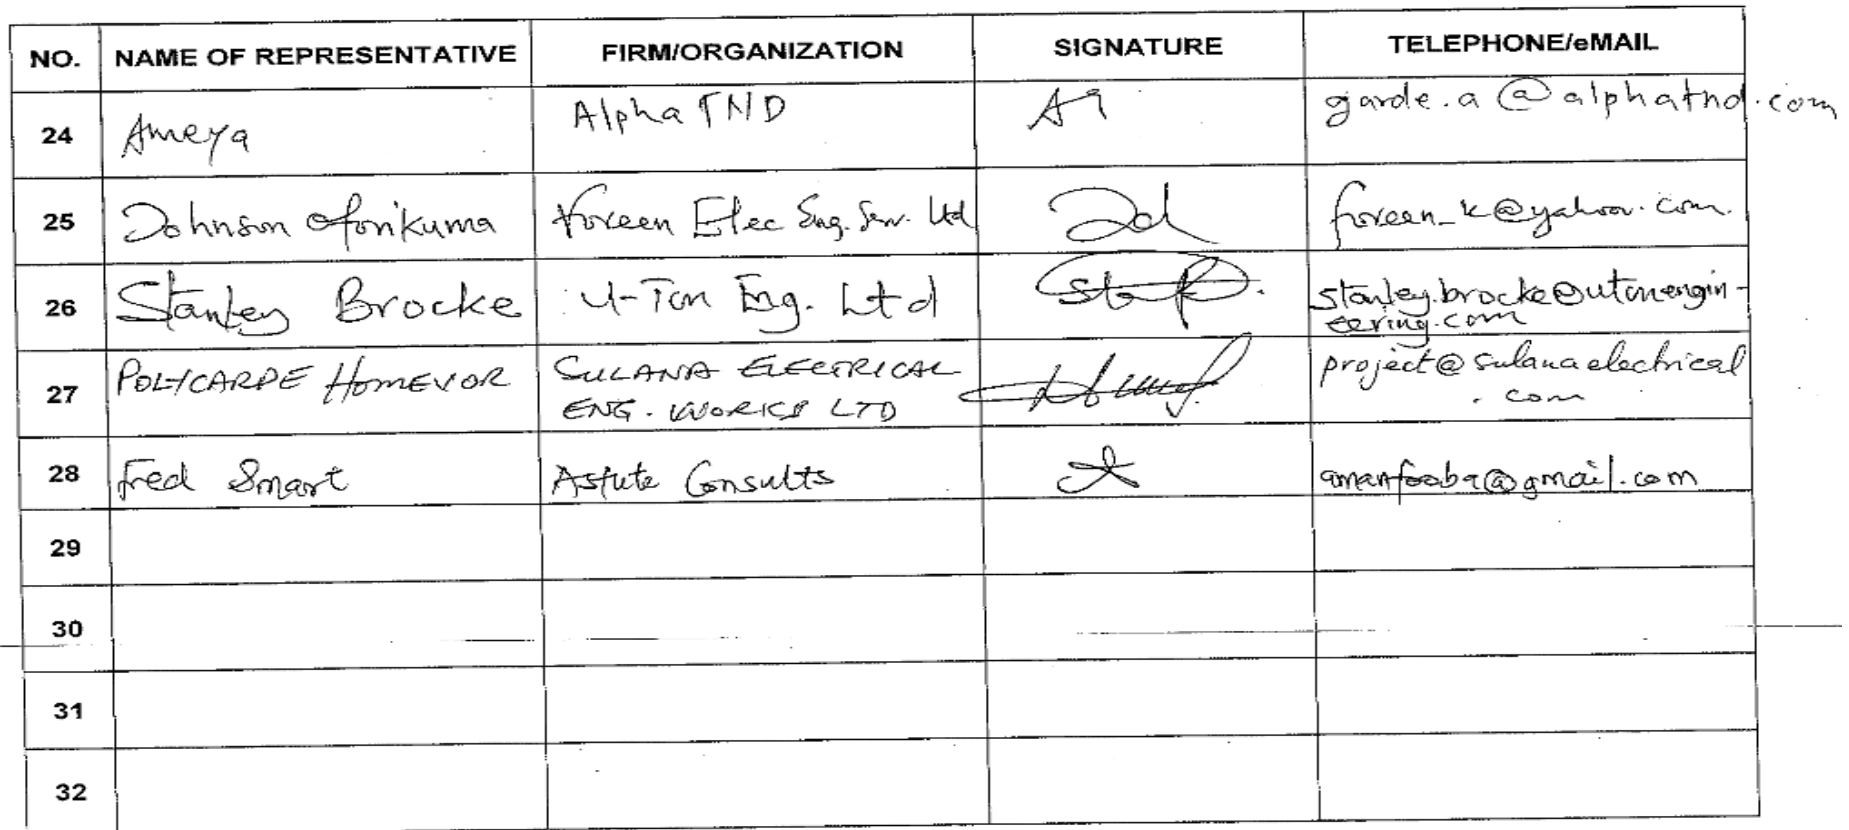 NO. NAME OF REPRESENTATIVE FIRM/ORGANIZATION SIGNATURE TELEPHONE/eMAIL
24 Ameya Alpha TND garde.a@alphatnd.com
25 Johnson Oforikuma Foreen Elec Eng. Serv. Ltd foreen_k@yahoo.com.
26 Stanley Brocke U-Ton Eng. Ltd stanley.brocke@utonengin-
eering.com
27 POLYCARPE HOMEVOR SULANA ELECTRICAL project@sulanaelectrical
ENG. WORKS LTD .com
28 Fred Smart Astute Consults amanfooba@gmail.com
29
30
31
32